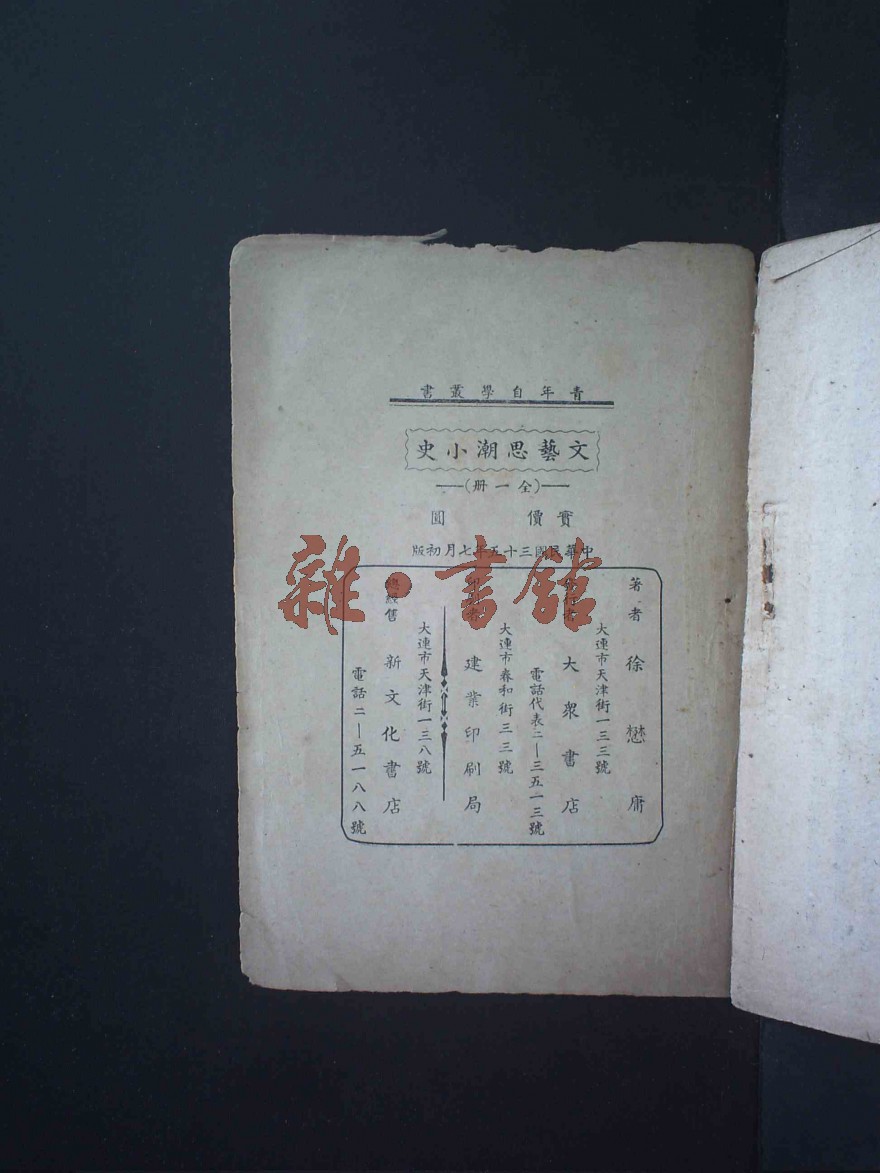 青年自學叢書
文藝思潮小史
(全一册)
實價 圓
中華民國三十五年七月初版
著者 徐懋庸
大連市天津街一三三號
大眾書店
電話代表二—三五一三號
大連市春和街三三號
建業印刷局
大連市天津街一三八號
總經售 新文化書店
電話二—五一八八號
雜·書館